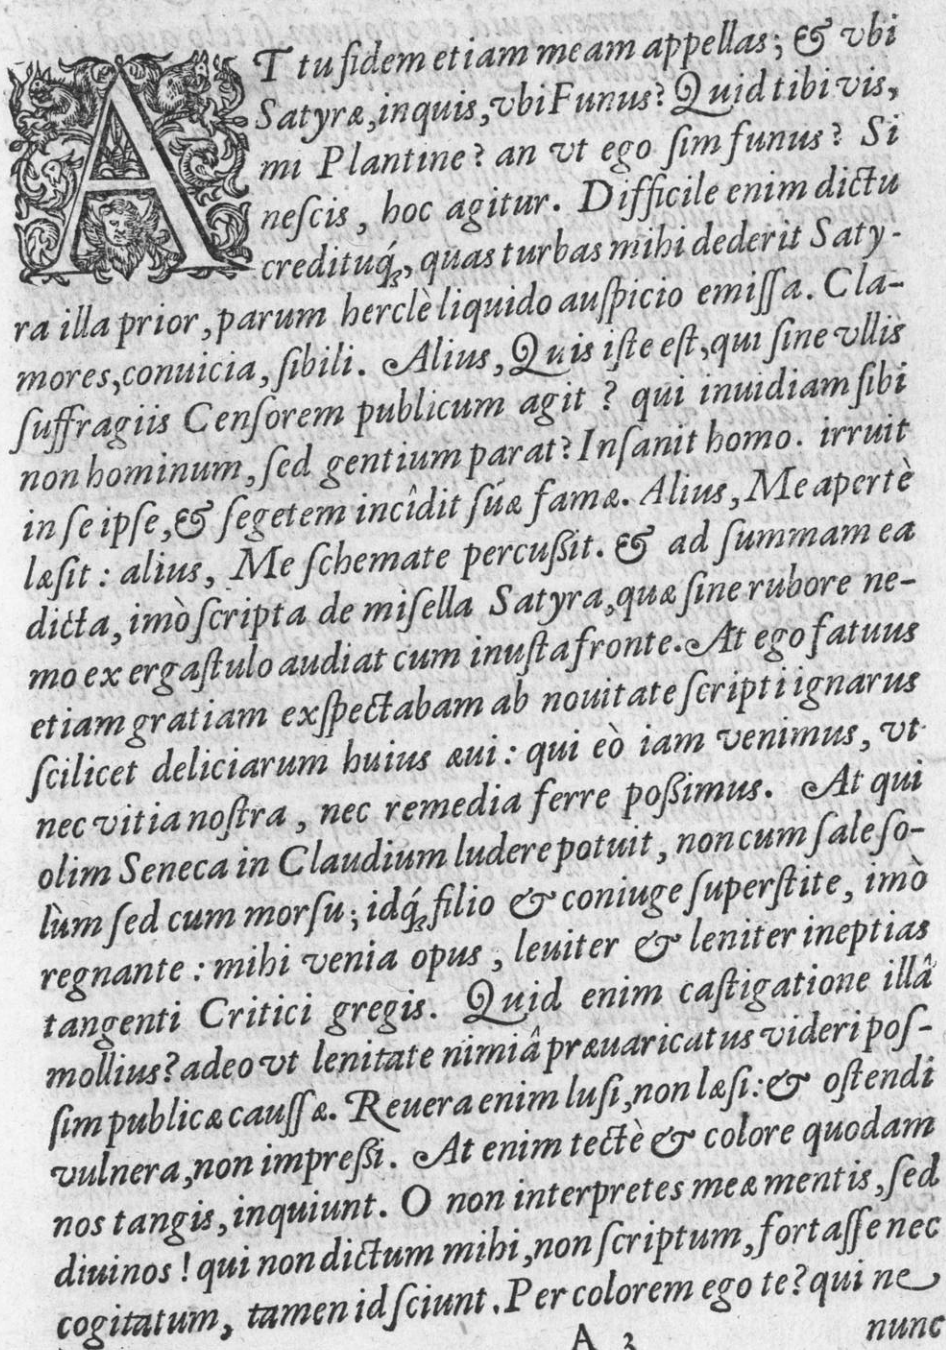 AT tu fidem etiam meam appellas; & vbi
Satyræ, inquis, vbi Funus? Quid tibi vis,
mi Plantine? an vt ego sim funus? Si
nescis, hoc agitur. Difficile enim dictu
credituq́;, quas turbas mihi dederit Saty-
ra illa prior, parum herclè liquido auspicio emissa. Cla-
mores, conuicia, sibili. Alius, Quis iste est, qui sine vllis
suffragiis Censorem publicum agit? qui inuidiam sibi
non hominum, sed gentium parat? Insanit homo. irruit
in se ipse, & segetem incîdit súæ famæ. Alius, Me apertè
læsit: alius, Me schemate percußit. & ad summam ea
dicta, imò scripta de misella Satyra, quæ sine rubore ne-
mo ex ergastulo audiat cum inusta fronte. At ego fatuus
etiam gratiam exspectabam ab nouitate scripti ignarus
scilicet deliciarum huius æui: qui eò iam venimus, vt
nec vitia nostra, nec remedia ferre poßimus. At qui
olim Seneca in Claudium ludere potuit, non cum sale so-
lùm sed cum morsu; idq́; filio & coniuge superstite, imò
regnante: mihi venia opus, leuiter & leniter ineptias
tangenti Critici gregis. Quid enim castigatione illâ
mollius? adeo vt lenitate nimiâ præuaricatus videri pos-
sim publicæ caussæ. Reuera enim lusi, non læsi: & ostendi
vulnera, non impreßi. At enim tectè & colore quodam
nos tangis, inquiunt. O non interpretes meæ mentis, sed
diuinos! qui non dictum mihi, non scriptum, fortasse nec
cogitatum, tamen id sciunt. Per colorem ego te? qui ne
A 3 nunc